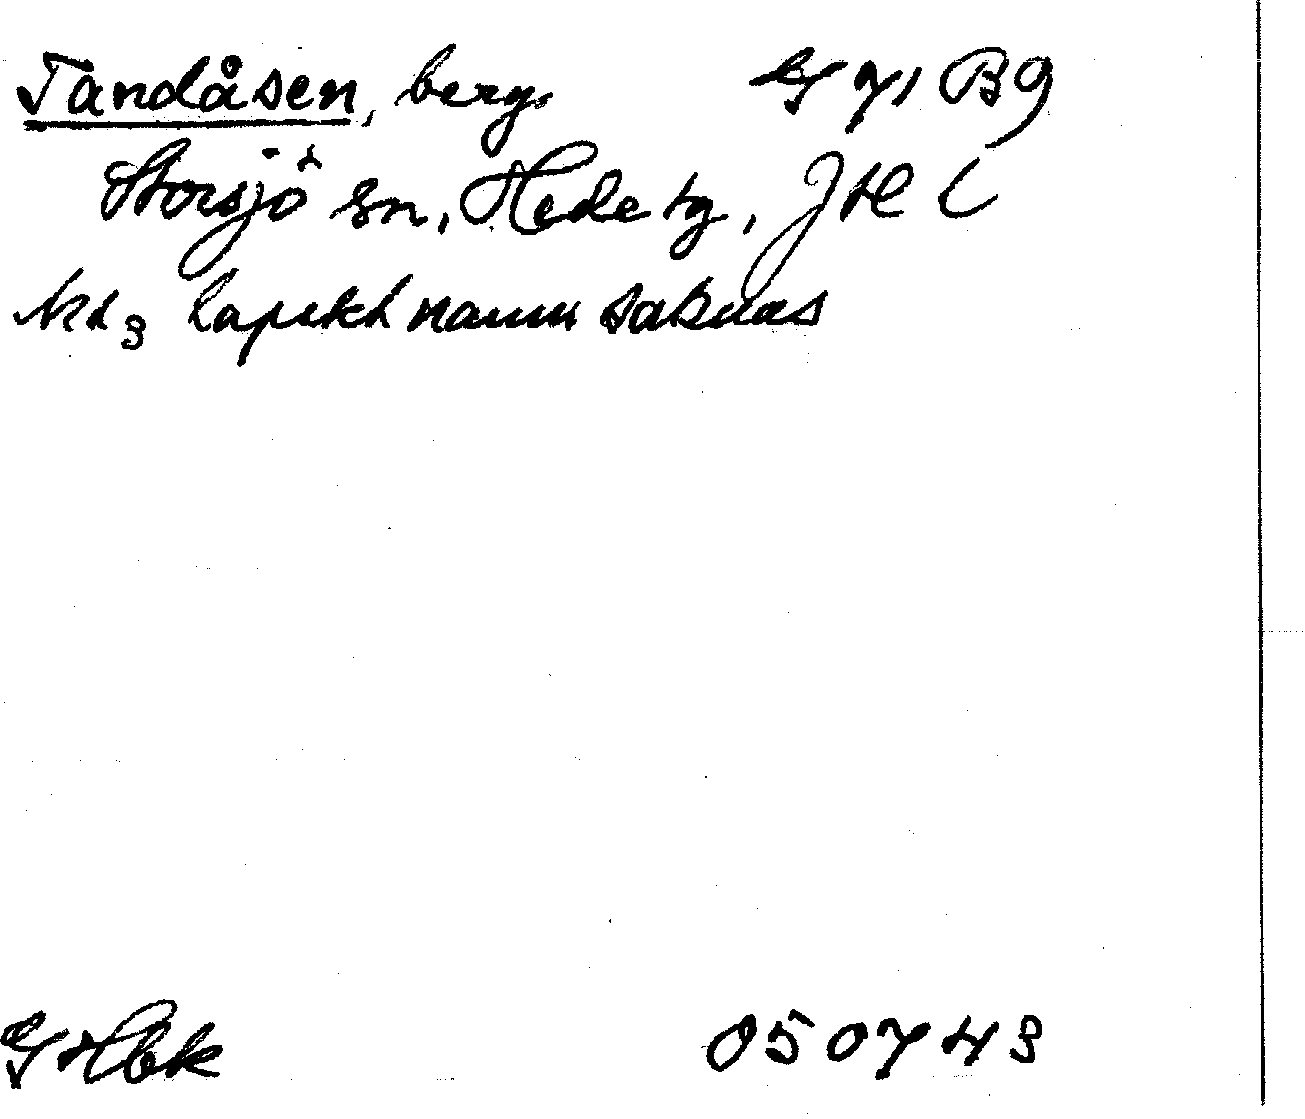 Tandåsen, berg. Gy 71 B9
Storsjö sn, Hede tg, JHL
lapskt namn saknas
050743